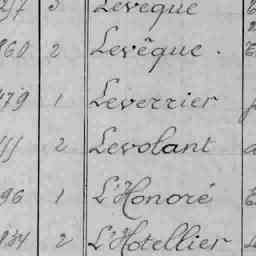 3 Leveque
860 2 Levêque.
479 1 Leverrier
2 Levolant
96 1 L'Honoré
834 2 L'Hotellier